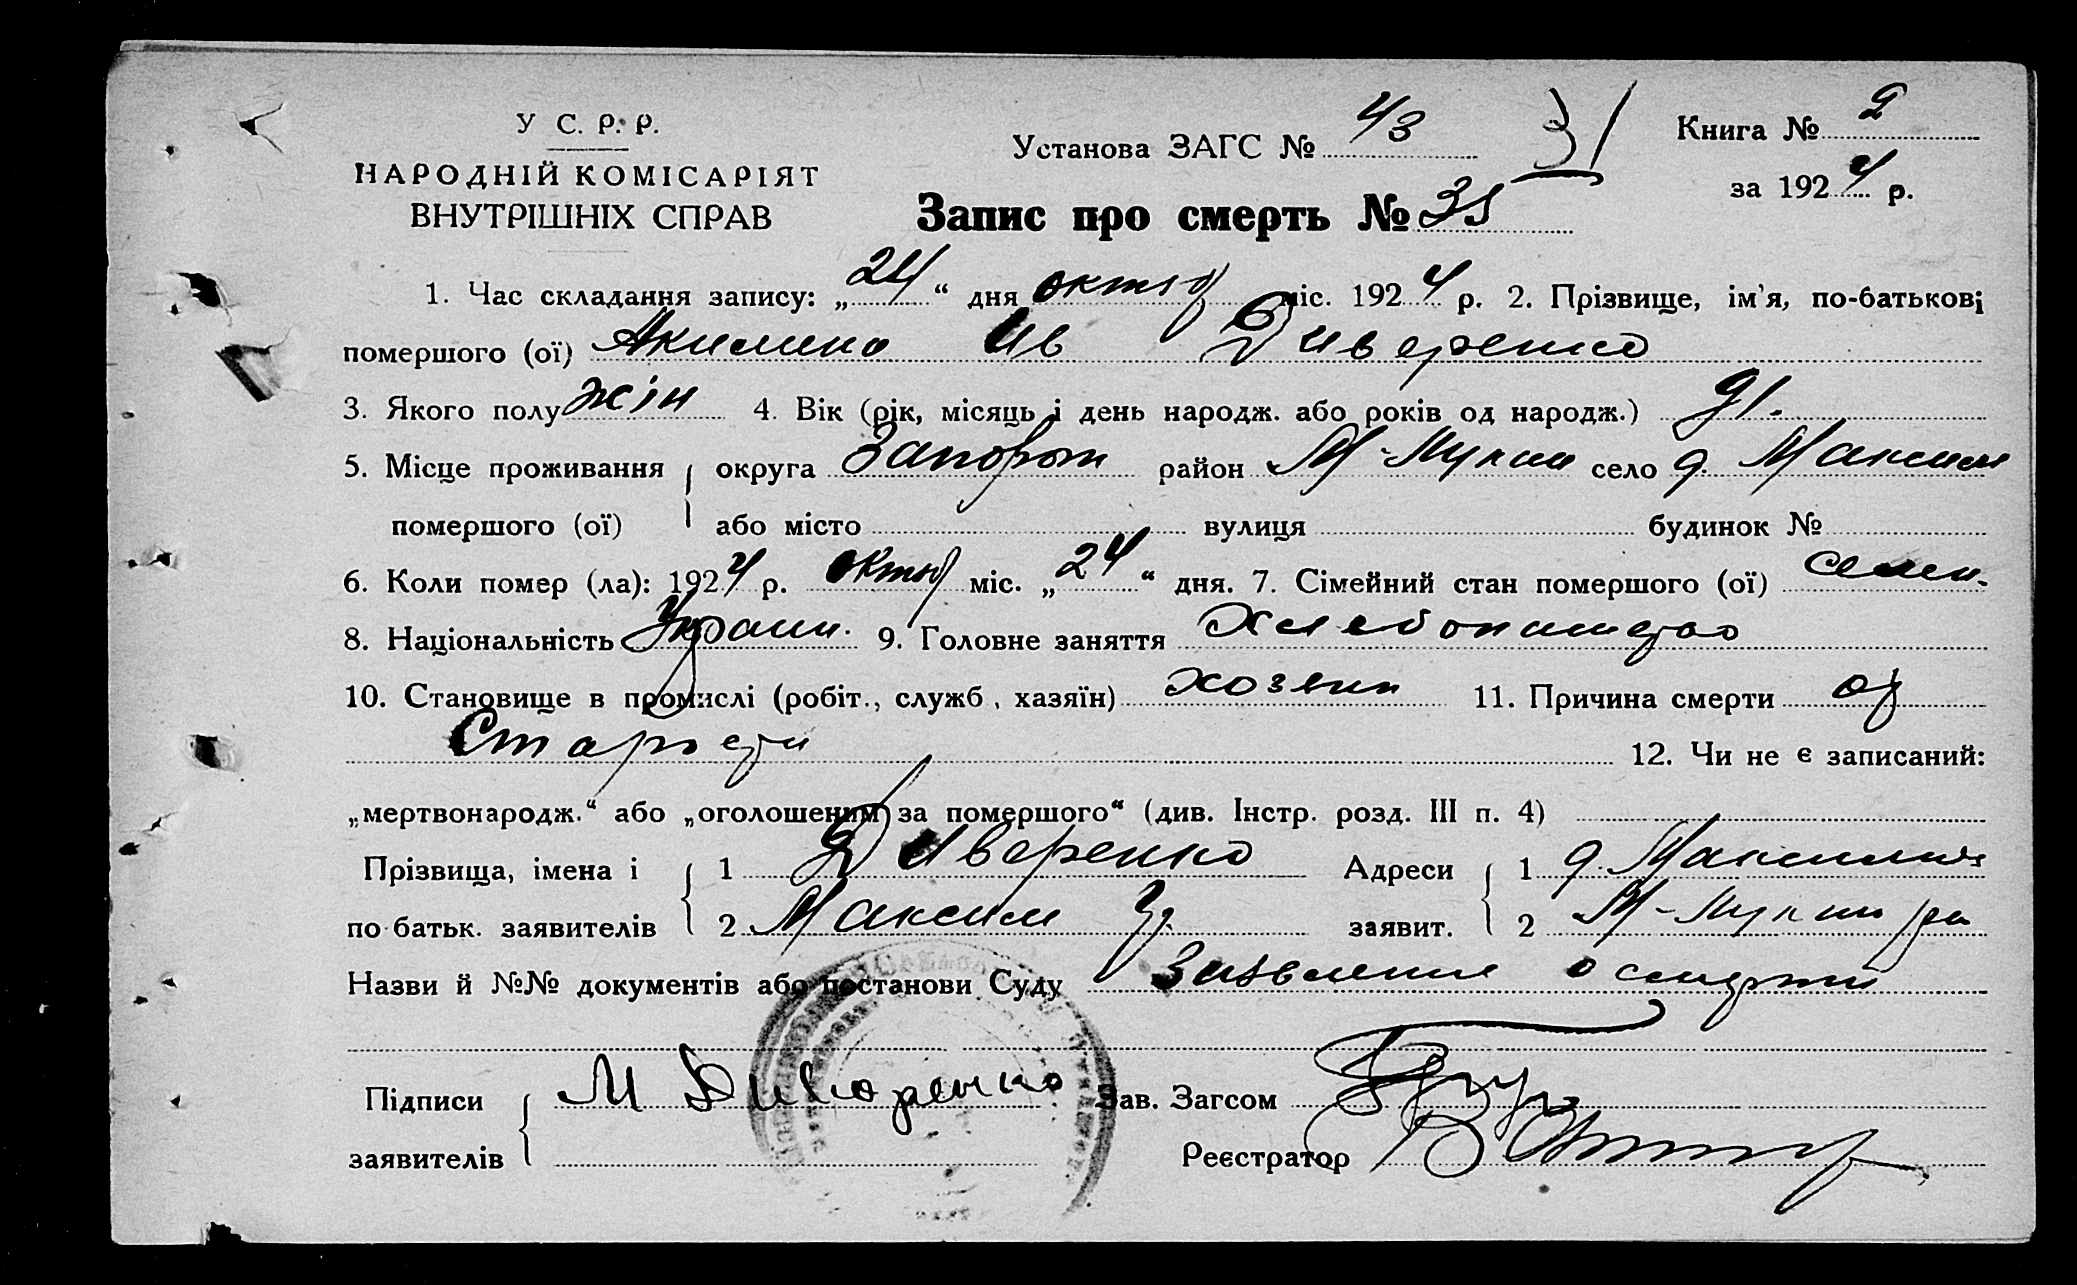 У С. Р. Р.
НАРОДНІЙ КОМІСАРІЯТ
ВНУТРІШНІХ СПРАВ
Установа ЗАГС № 43
31
Книга № 2
за 1924 р.
Запис про смерть № 35
1. Час складання запису: „24“ дня октяб міс. 1924 р. 2. Прізвище, ім'я, по-батькові
помершого (ої) Акилина Ив Диверенко
3. Якого полу жін 4. Вік (рік, місяць і день народж. або років од народж.) 91.
5. Місце проживання округа Запорож район М-Лукаш село д. Максим
помершого (ої) або місто вулиця будинок №
6. Коли помер (ла): 1924 р. октяб міс. „24“ дня. 7. Сімейний стан помершого (ої) семей.
8. Національність Украин. 9. Головне заняття Хлебопашество
10. Становище в промислі (робіт., служб, хазяїн) хозяин 11. Причина смерти от
Старости 12. Чи не є записаний:
„мертвонародж.“ або „оголошеним за помершого“ (див. Інстр. розд. III п. 4)
Прізвища, імена і 1 Диверенко Адреси 1 д.
по батьк. заявителів 2 Максим заявит. 2
Назви й №№ документів або постанови Суду Заявление о смерти
Підписи М Диверенко Зав. Загсом
заявителів Реєстратор